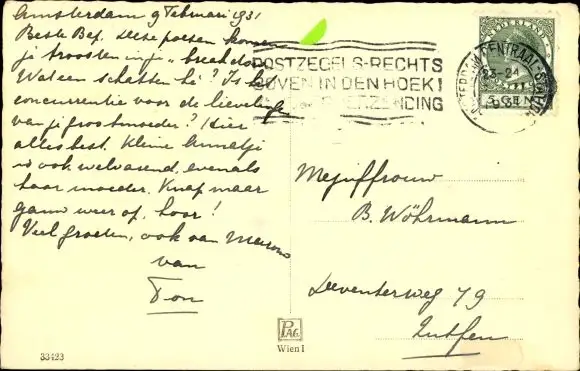 Amsterdam 9 Februari 1931
Beste Bep. Deze poesen komen
je troosten in je „break down".
Wat een schatten hè? Is het
concurrentie voor de lieveling
van je grootmoeder? Hier
alles best. Kleine Annetje
is ook welvarend, evenals
haar moeder. Knap maar
gauw weer op, hoor!
Veel groeten, ook van
van
Ton
POSTZEGELS RECHTS
BOVEN IN DEN HOEK!
ZENDING
NEDERLAND
CENTRAAL STATION
23-24
1931
Mejuffrouw
B. Wöhrmann
Deventerweg 79
Zutfen
PAG
Wien I
33423